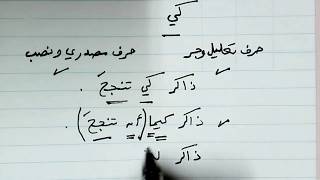 كي
حرف تعليل وجر    حرف مصدري ونصب
ذاكر كي تنجحَ .
ذاكر كيما (أن تنجحَ) .
ذاكر